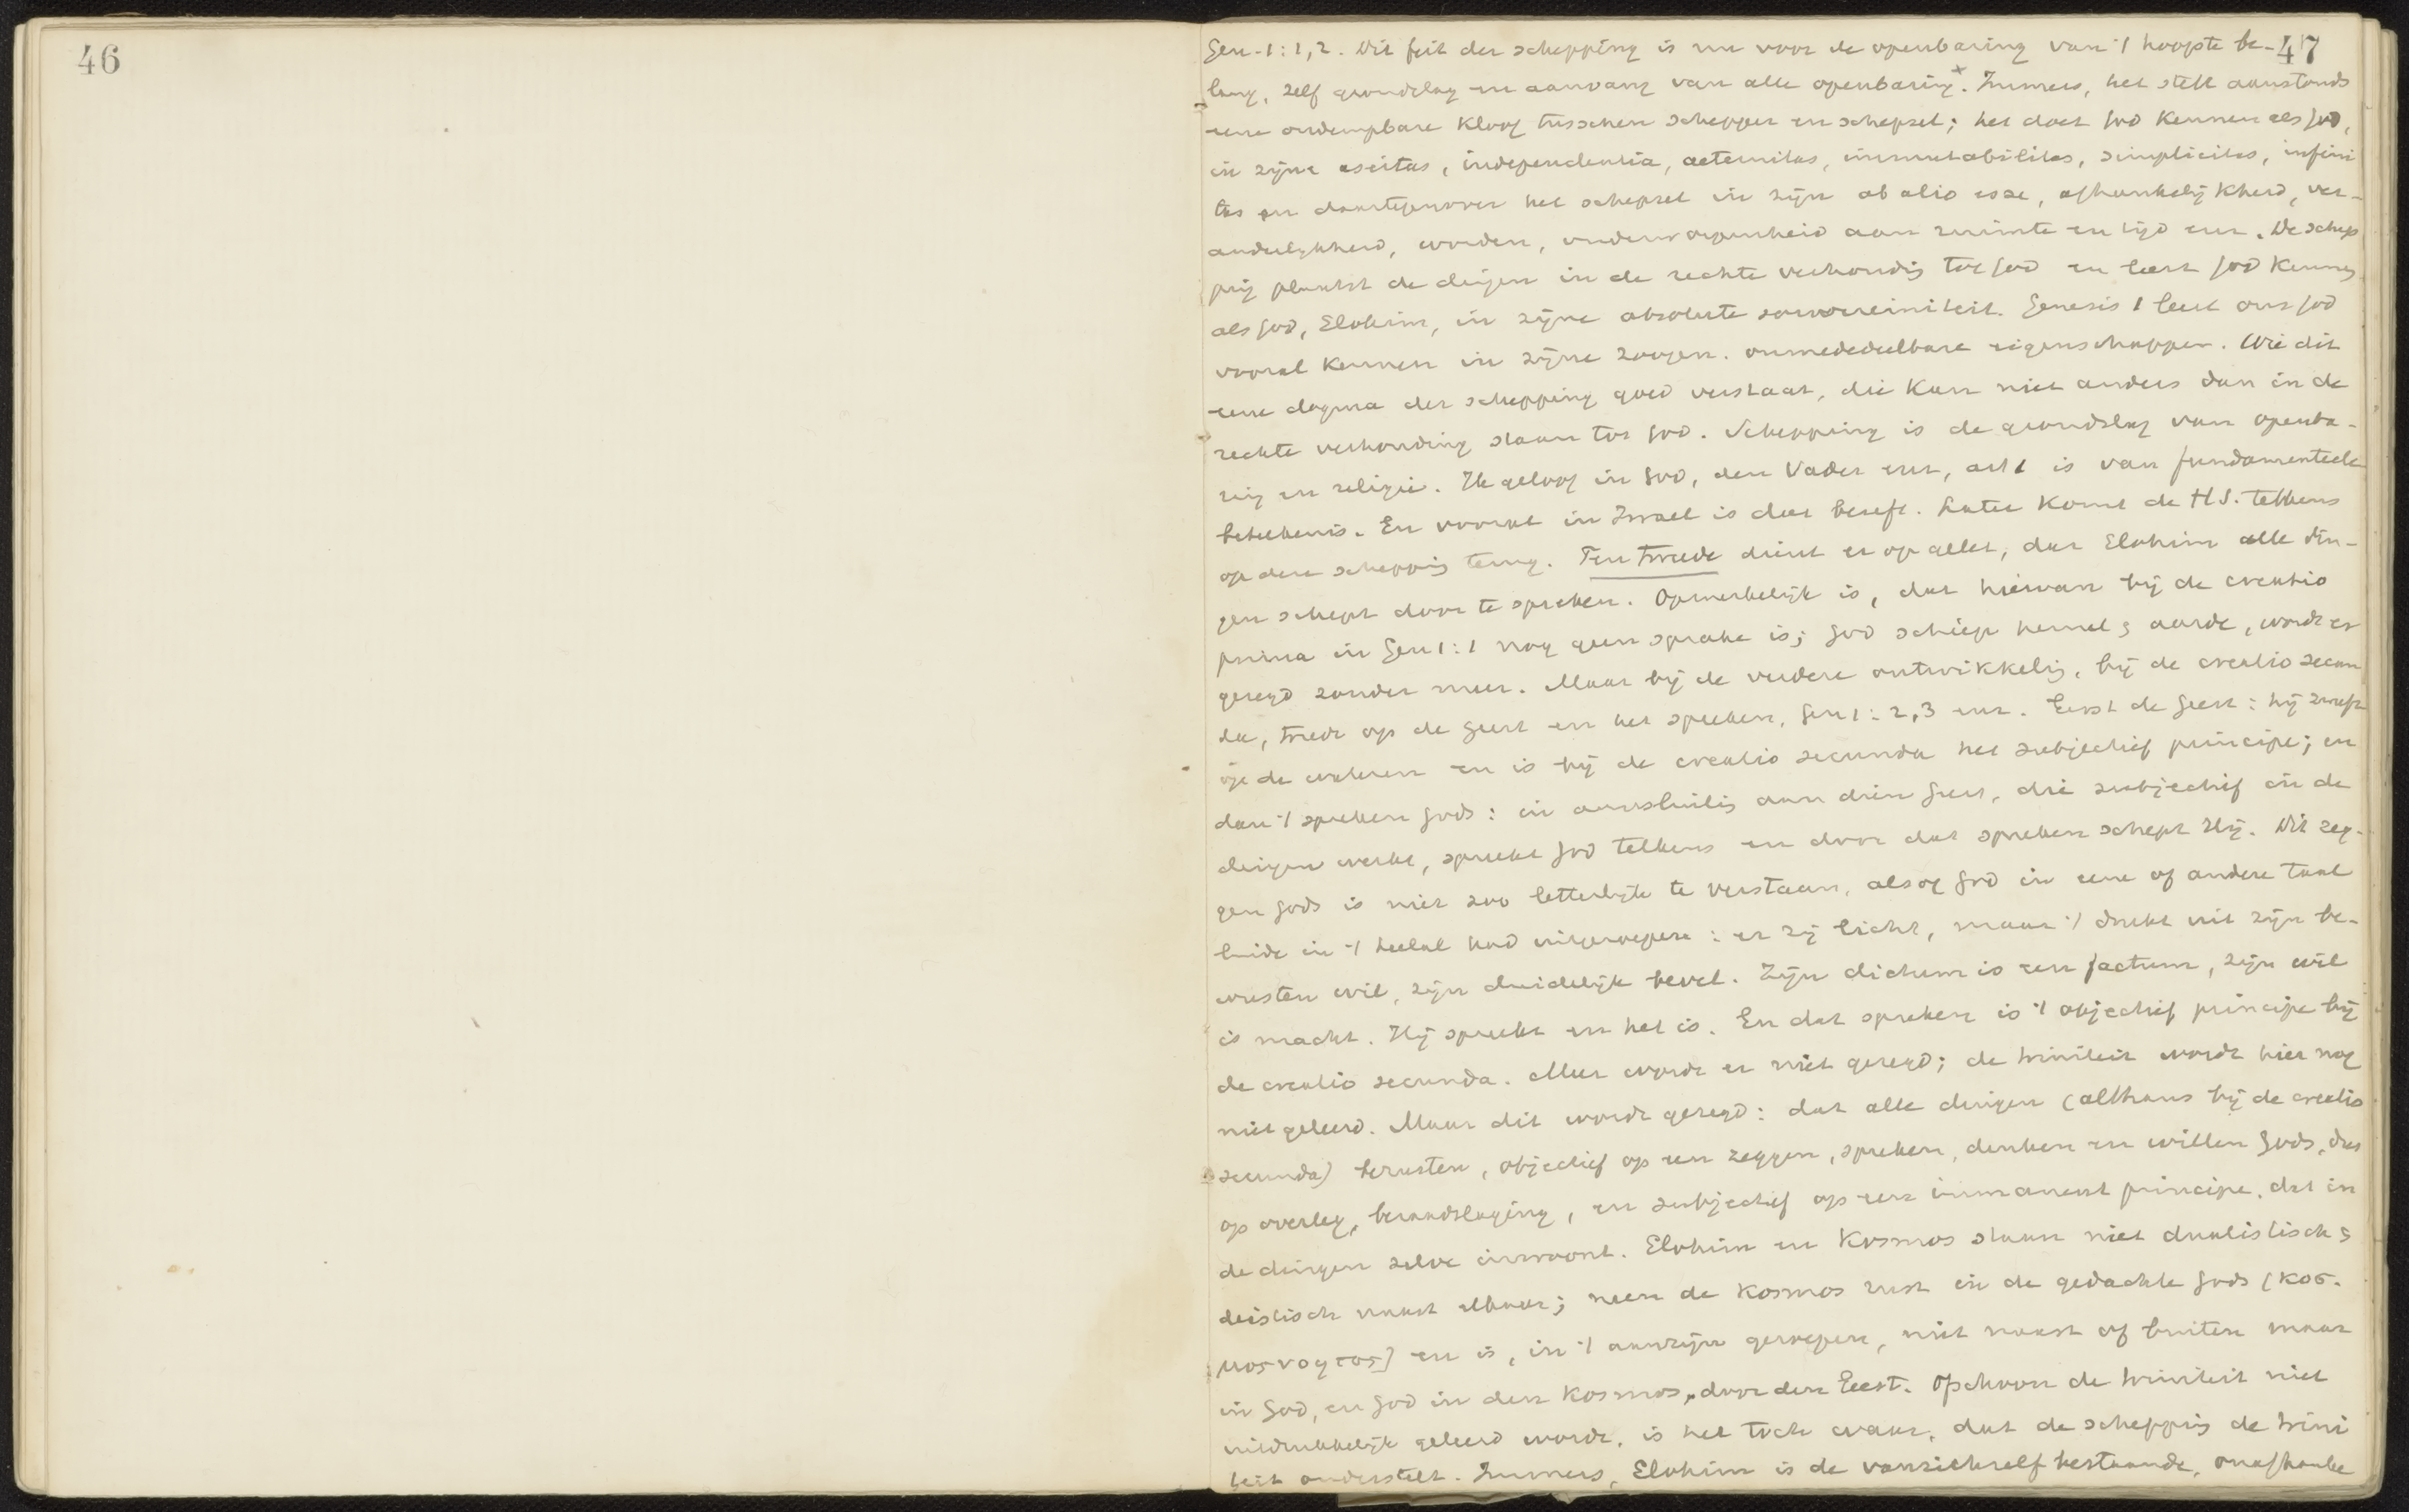 46
47
Gen. 1:1,2. Dit feit der schepping is nu voor de openbaring van 't hoogste be-
lang, zelf grondslag en aanvang van alle openbaring. x Immers, het stelt aanstonds
eene ondempbare kloof tusschen schepper en schepsel; het doet God kennen als God,
in zijne aseitas, independentia, aeternitas, immutabilitas, simplicitas, infini
tas en daartegenover het schepsel in zijn ab alio esse, afhankelijkheid, ver-
anderlijkheid, worden, onderworpenheid aan ruimte en tijd enz. De schep
ping plaatst de dingen in de rechte verhouding tot God en leert God kennen
als God, Elohim, in zijne absolute souvereiniteit. Genesis 1 leert ons God
vooral kennen in zijne zoogen. onmededeelbare eigenschappen. Wie dit
eene dogma der schepping goed verstaat, die kan niet anders dan in de
rechte verhouding staan tot God. Schepping is de grondslag van openba-
ring en religie. Ik geloof in God, den Vader enz, art 1 is van fundamenteele
beteekenis. En vooral in Israel is dat beseft. Later komt de H.S. telkens
op deze schepping terug. Ten tweede dient er op gelet, dat Elohim alle din-
gen schept door te spreken. Opmerkelijk is, dat hiervan bij de creatio
prima in Gen 1:1 nog geen sprake is; God schiep hemel & aarde, wordt er
gezegd zonder meer. Maar bij de verdere ontwikkeling, bij de creatio secun
da, treedt op de Geest en het spreken, Gen 1:2,3 enz. Eerst de Geest: hij zweeft
op de wateren en is bij de creatio secunda het subjectief principe; en
dan 't spreken Gods: in aansluiting aan dien Geest, die subjectief in de
dingen werkt, spreekt God telkens en door dat spreken schept Hij. Dit zeg-
gen Gods is niet zoo letterlijk te verstaan, alsof God in eene of andere taal
luide in 't heelal had uitgeroepen: er zij licht, maar 't drukt uit zijn be-
wusten wil, zijn duidelijk bevel. Zijn dictum is een factum, zijn wil
is macht. Hij spreekt en het is. En dat spreken is 't objectief principe bij
de creatio secunda. Meer wordt er niet gezegd; de triniteit wordt hier nog
niet geleerd. Maar dit wordt gezegd: dat alle dingen (althans bij de creatio
secunda) berusten, objectief op een zeggen, spreken, denken en willen Gods, dus
op overleg, beraadslaging, en subjectief op een immanent principe, dat in
de dingen zelve inwoont. Elohim en Kosmos staan niet dualistisch &
deistisch naast elkaar; neen de Kosmos rust in de gedachte Gods (κοσ-
μος νοητος) en is, in 't aanzijn geroepen, niet naast of buiten maar
in God, en God in den Kosmos, door den Geest. Ofschoon de triniteit niet
uitdrukkelijk geleerd wordt, is het toch waar, dat de schepping de trini
teit onderstelt. Immers, Elohim is de vanzichzelf bestaande, onafhanke